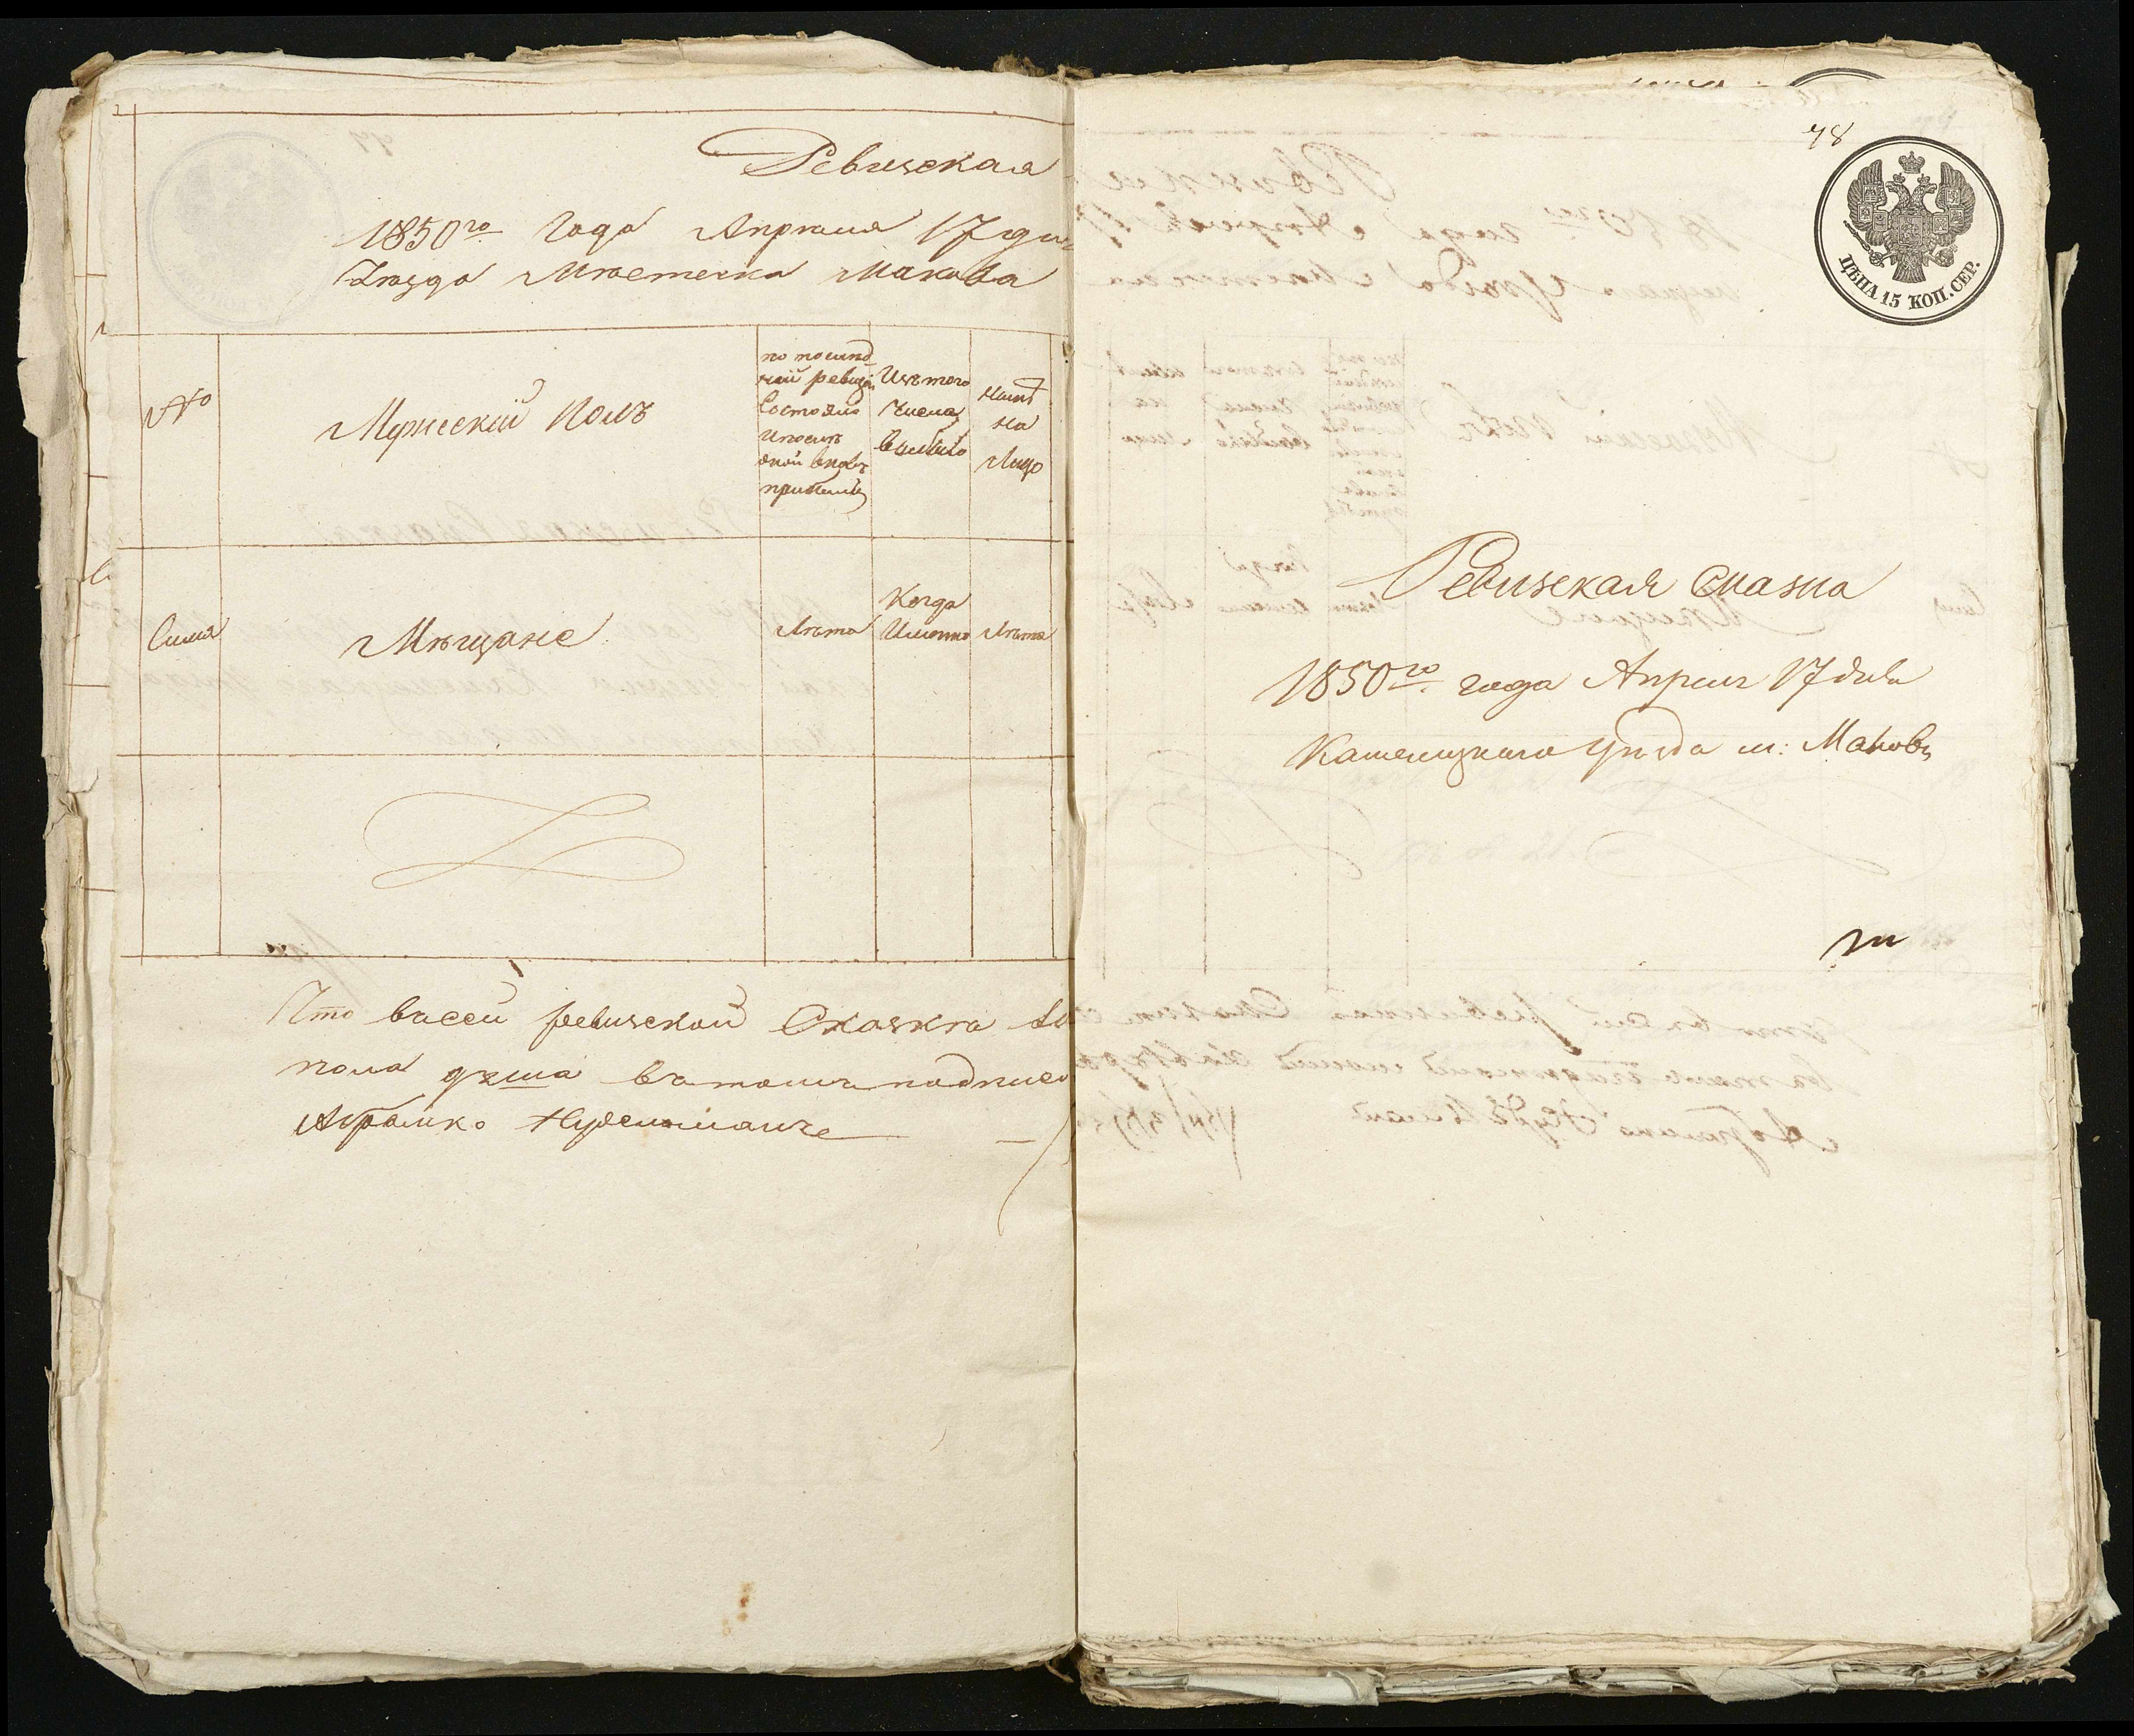 Ревизская
1850го Года Апреля 17 дня
Уѣзда Мѣстечка Макова
№
Мужескій Полъ
по послѣд
ней ревизіи
Состояло
и послѣ
оной вновь
прибыли
Изъ того
Числа
выбыло
Нынѣ
на
Лицо
Семья
Мѣщане
Лѣта
Когда
Имянно
Лѣта
Что всеи ревизской Сказкѣ
пола душа втомъ подписо
Абрамко Нудельманъ
78
ЦѢНА 15 КОП. СЕР.
Ревизская Сказка
1850го года Апреля 17 дня
Каменецкаго Уѣзда м: Маковъ